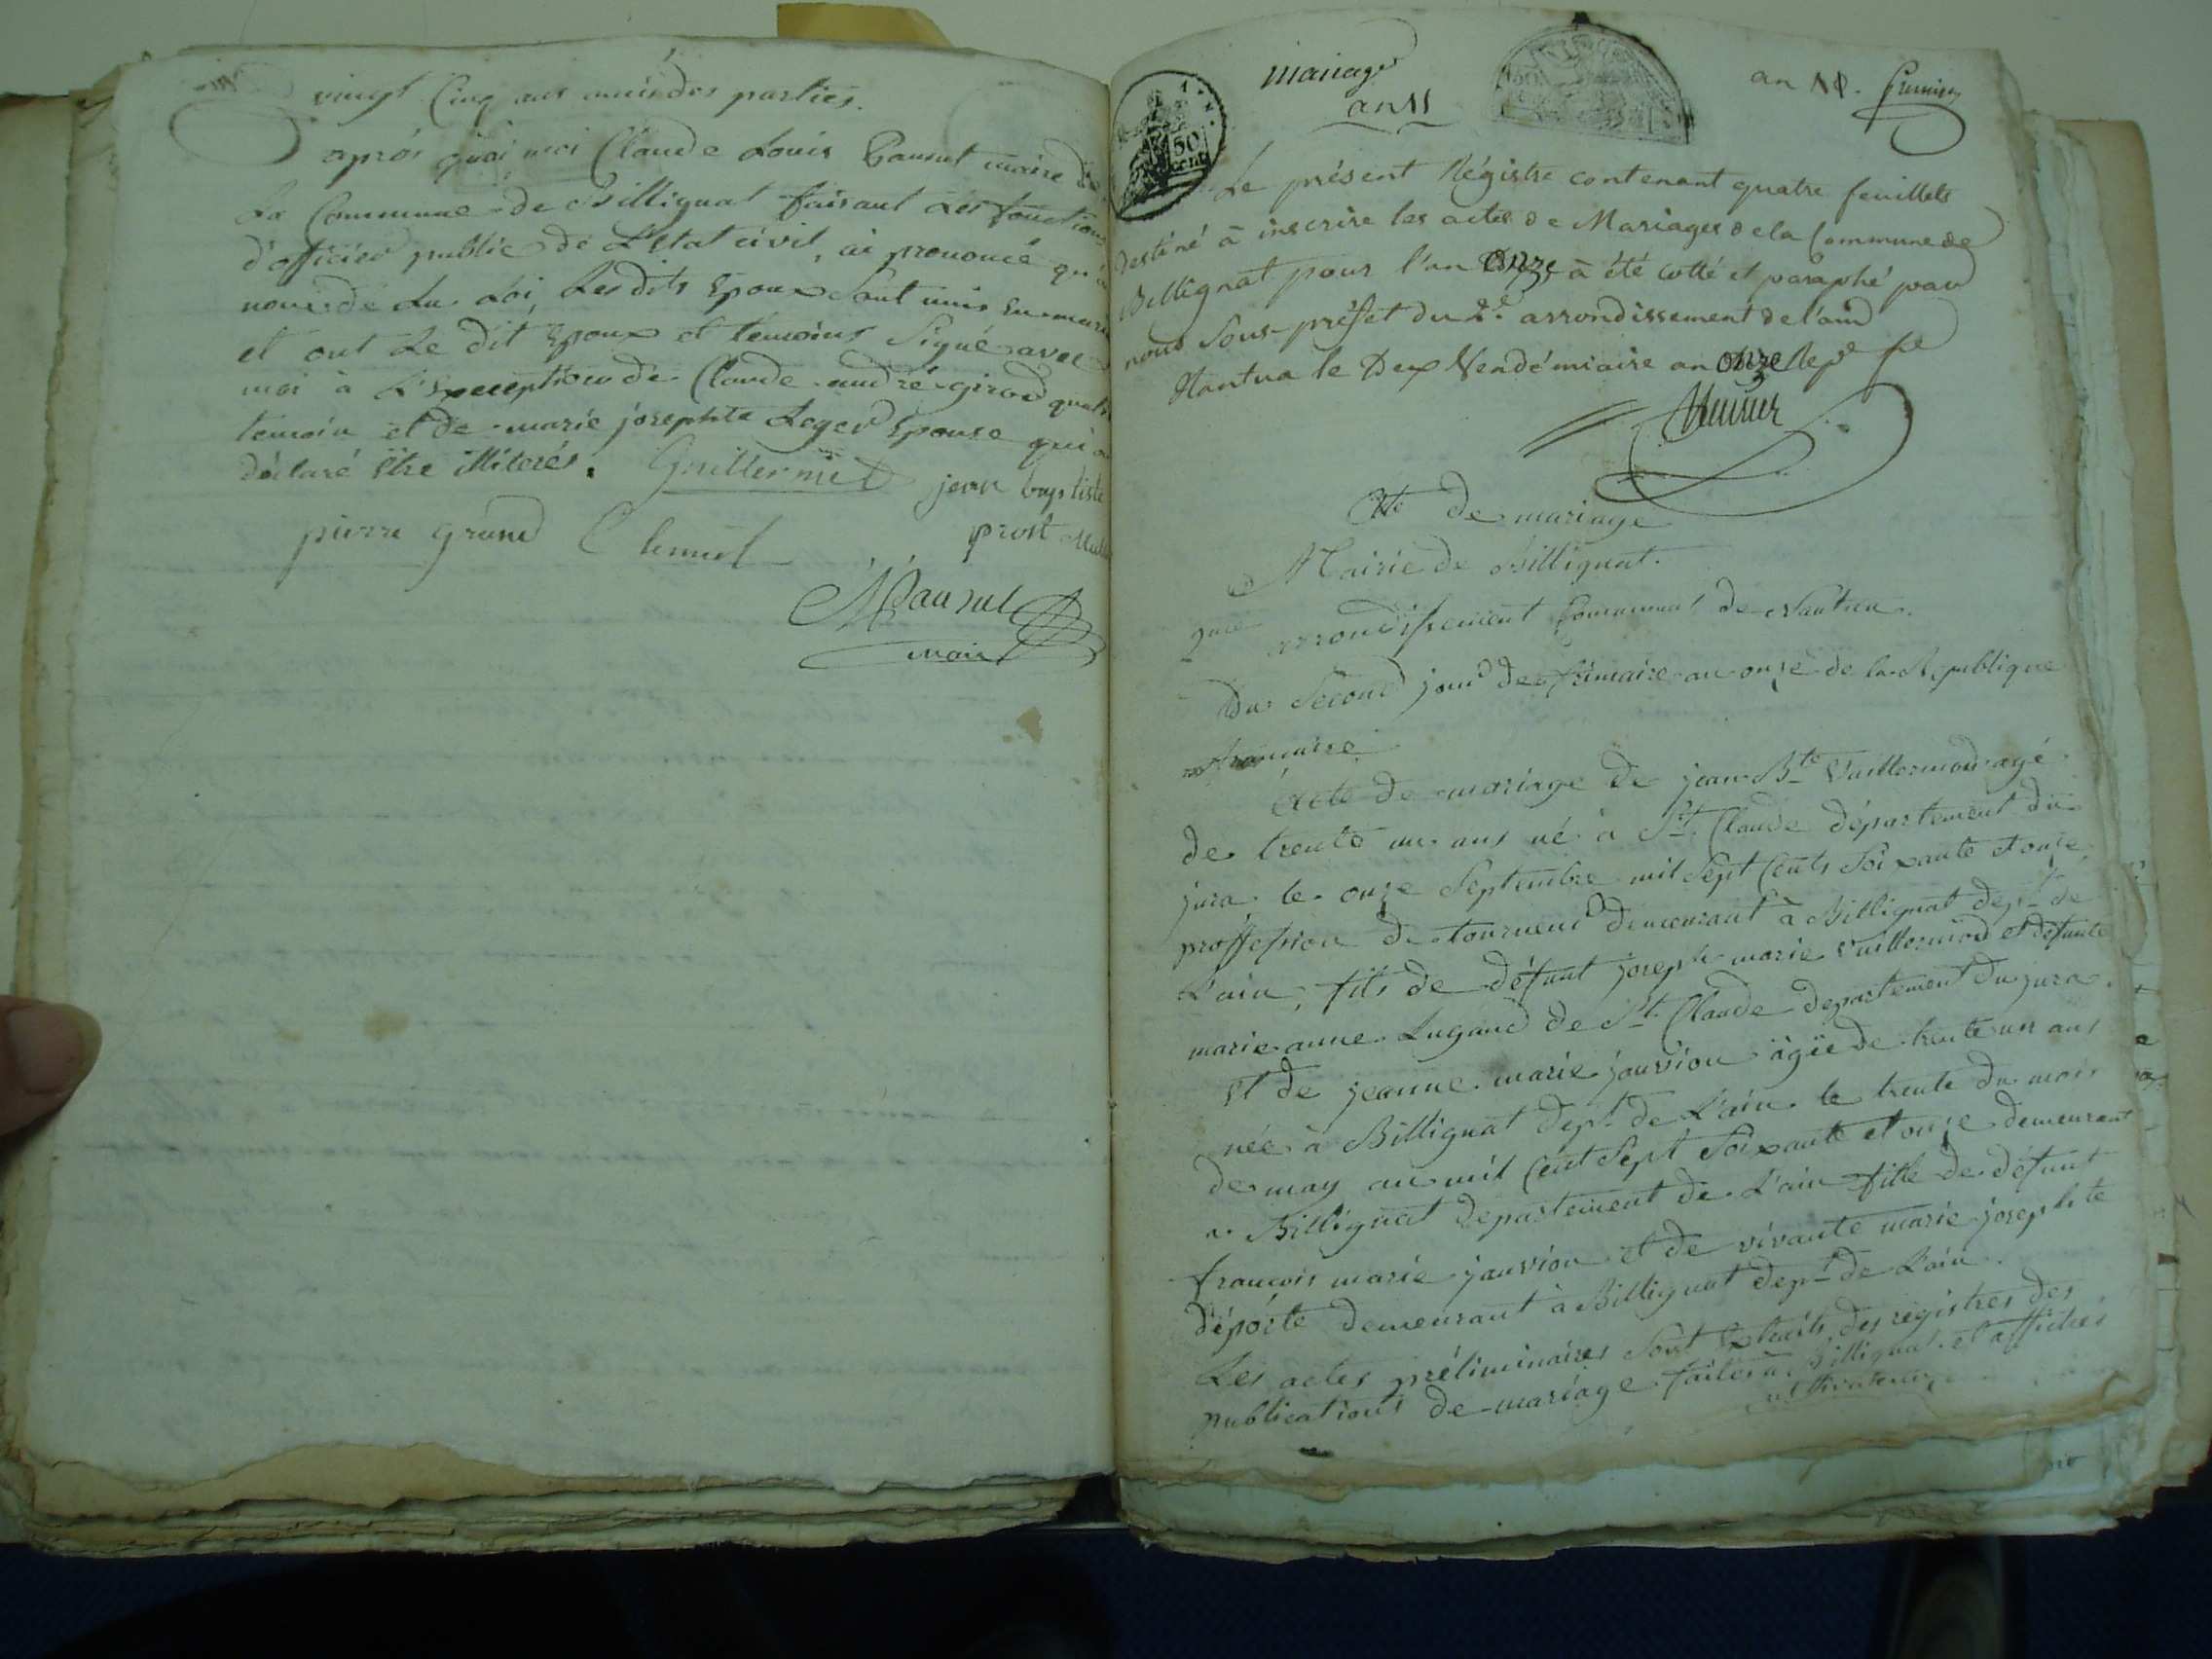 vingt Cinq ans amis des parties.
après quoi moi Claude Louis maire de
La Commune de Billignat faisant Les fonctions
d'officier public de L'Etat civil, ai prononcé qu'au
nom de La Loi, Les dits Epoux sont unis en mari
et ont Le dit Epoux et témoins Signé avec
moi à L'Exception de Claude andré girod quatr
temoin et de marie josephte Leger Epouse qui on
déclaré Etre illiterés. Guillermet jean baptiste
pierre grand Clement prost
maire
mariage
an 11
50
cent
an Premier
Le présent Régistre contenant quatre feuillets
destiné à inscrire les actes de Mariages de la Commune de
Billignat pour l'an onze à été cotté et paraphé par
nous Sous-préfet du 2e. arrondissement de l'ain
Nantua le Deux Vendémiaire an onze
Acte de mariage
Mairie de Billignat.
arrondissement Communal de Nantua.
Du Second jour de frimaire an onze de la Republique
francaise
Acte de mariage de jean Bte Vuillermoz agé
de trente un ans né à St. Claude département du
jura le onze Septembre mil Sept Cents Soixante et onze
proffession de tourneur demeurant à Billignat dept de
L'ain, fils de défunt joseph marie Vuillermoz et defunte
marie anne Lugand de St. Claude departement du jura.
et de jeanne marie janvion âgée de trente un ans
née à Billignat dept. de L'ain le trente du mois
de may an mil Cent Sept Soixante et onze demeurant
a Billignat departement de L'ain fille de défunt
françois marie janvion et de vivante marie josephte
déporte demeurant à Billignat dept de L'ain.
Les actes préliminaires Sont Extraits des registres des
publications de mariage faites à Billignat et affichés